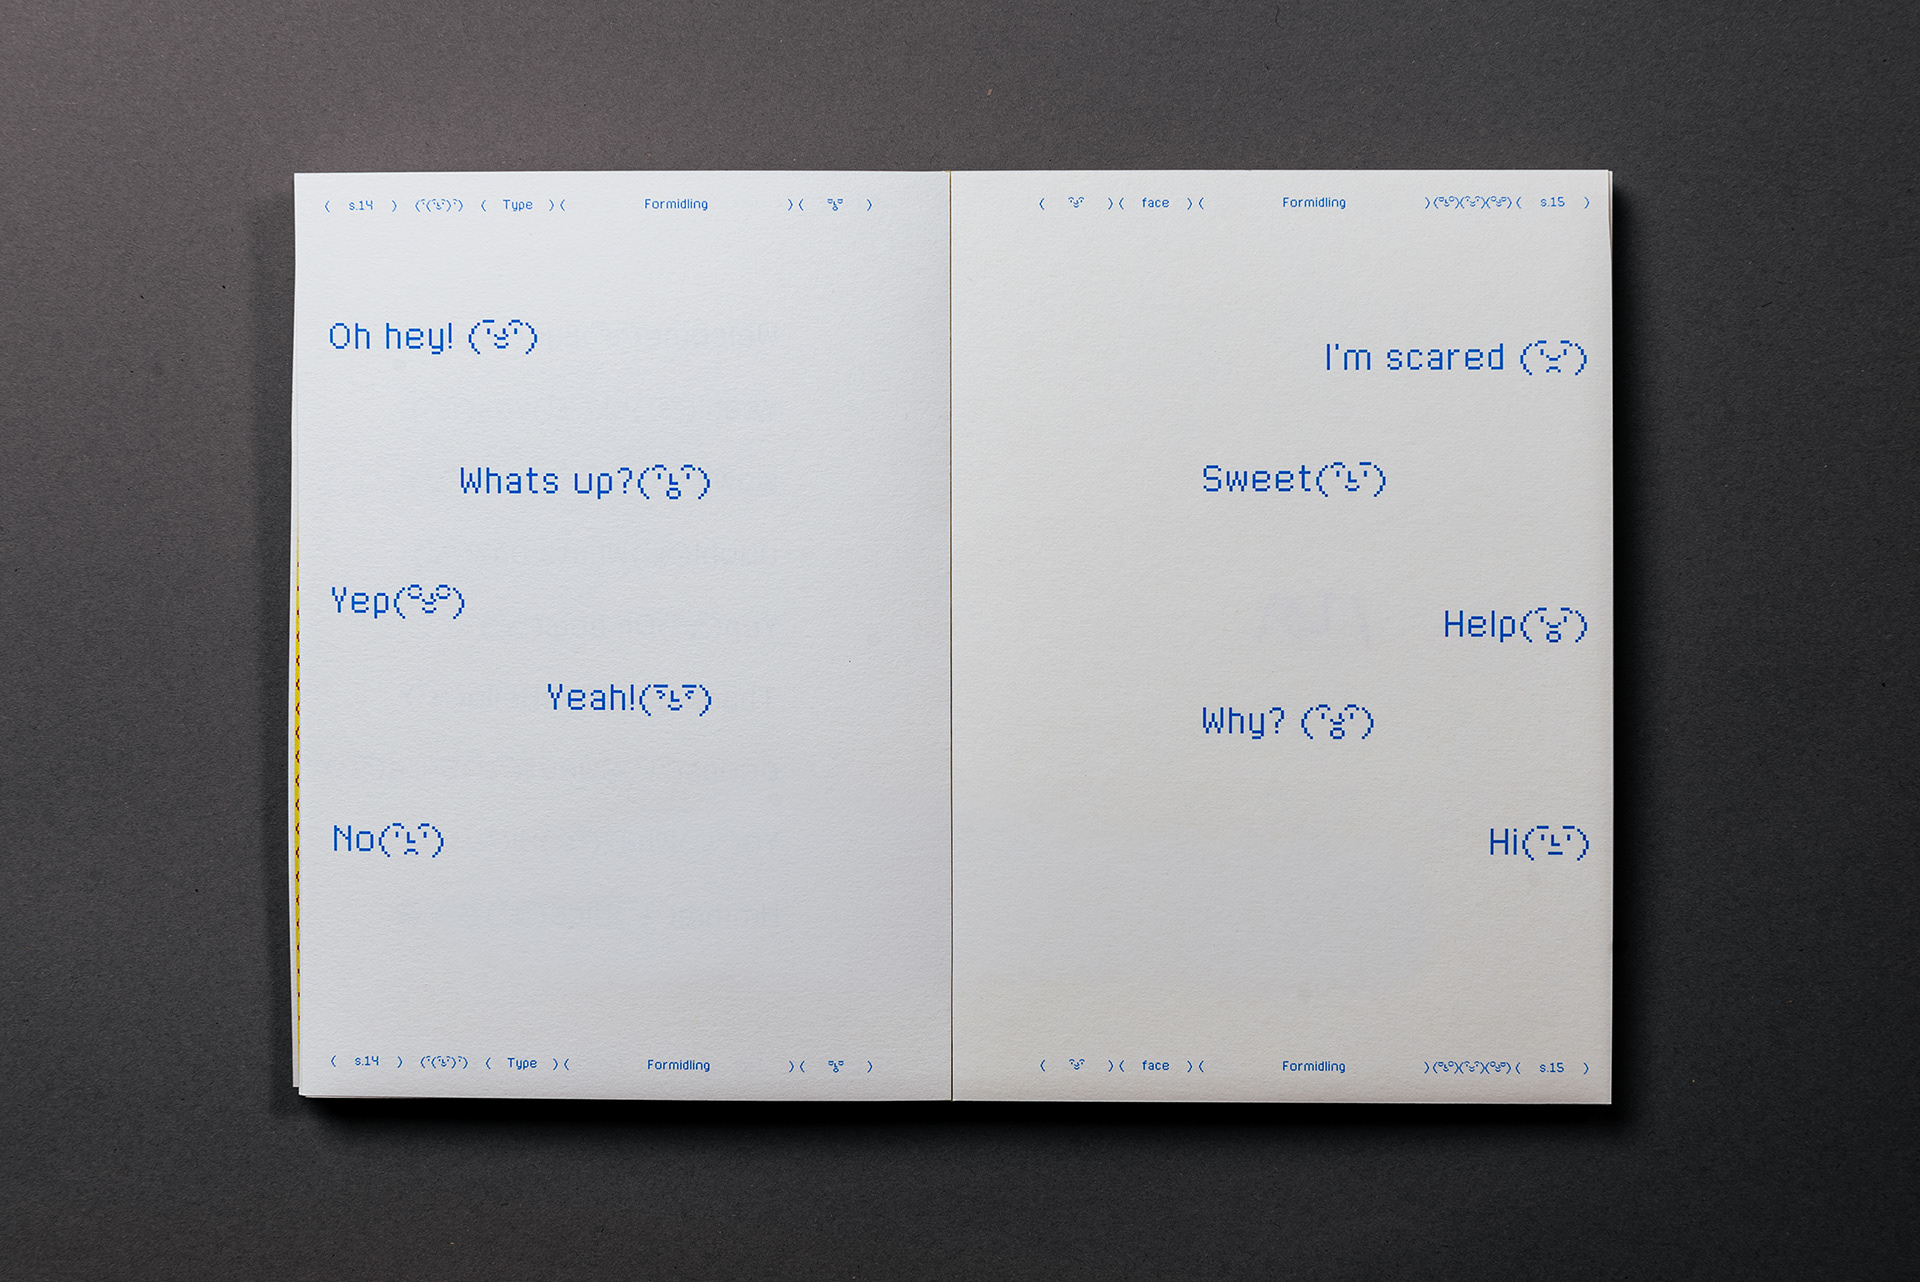 ( s.14 ) ( Type ) ( Formidling ) ( )
Oh hey!
Whats up?
Yep
Yeah!
No
( s.14 ) ( Type ) ( Formidling ) ( )
( ) ( face ) ( Formidling ) ( s.15 )
I'm scared
Sweet
Help
Why?
Hi
( ) ( face ) ( Formidling ) ( s.15 )